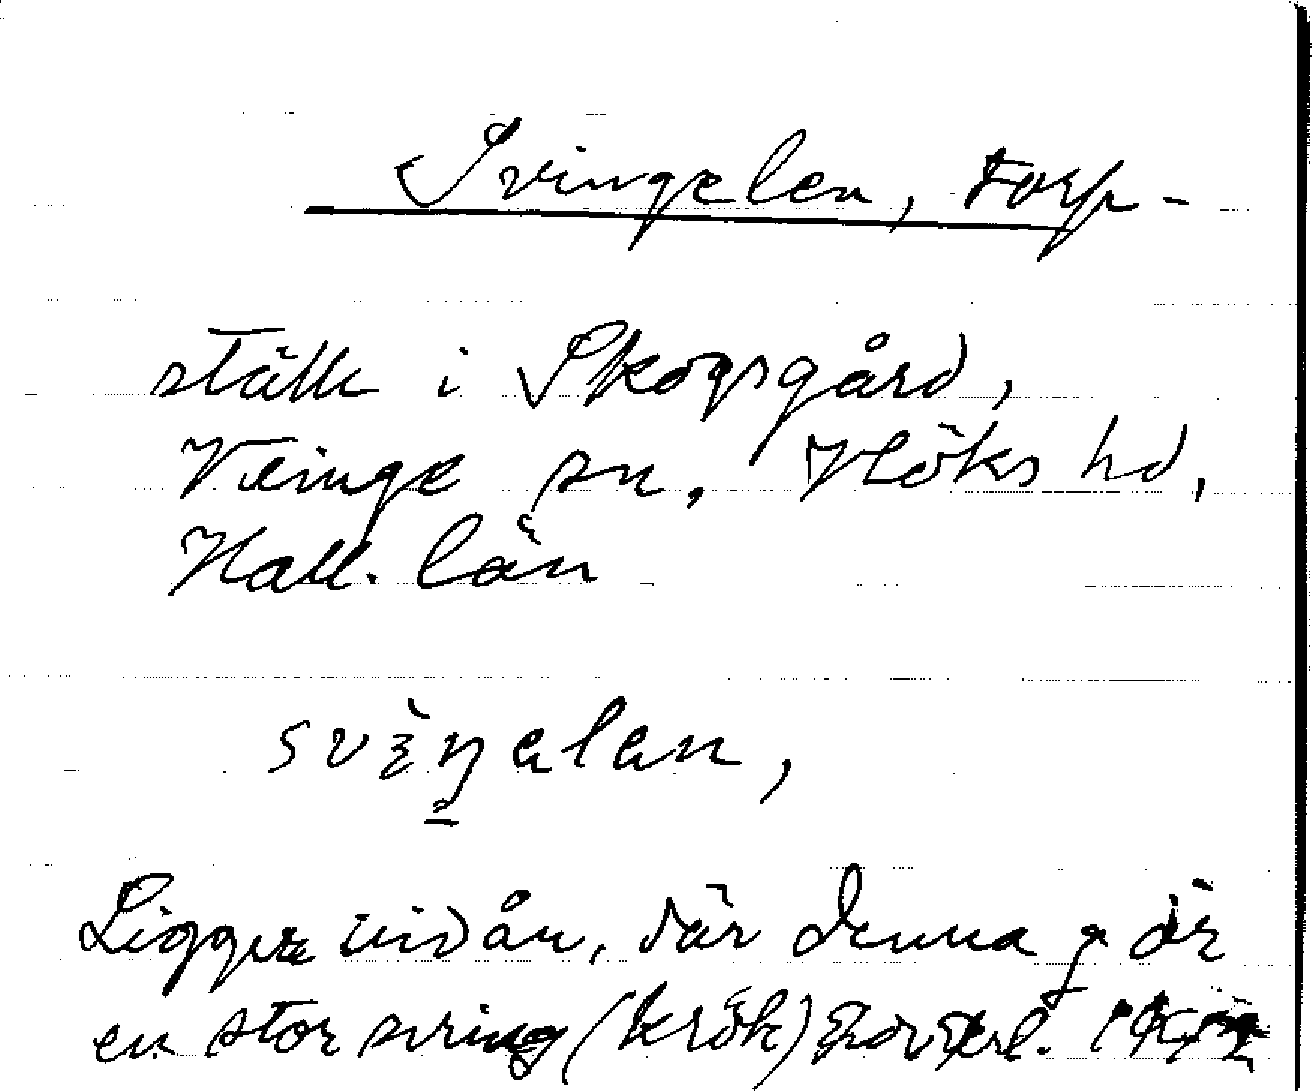 Svingelen, torp-
ställe i Skogsgård,
Veinge sn, Höks hd,
Hall. län
svèŋelen,
Ligger vid ån, där denna gör
en stor sving (krök)